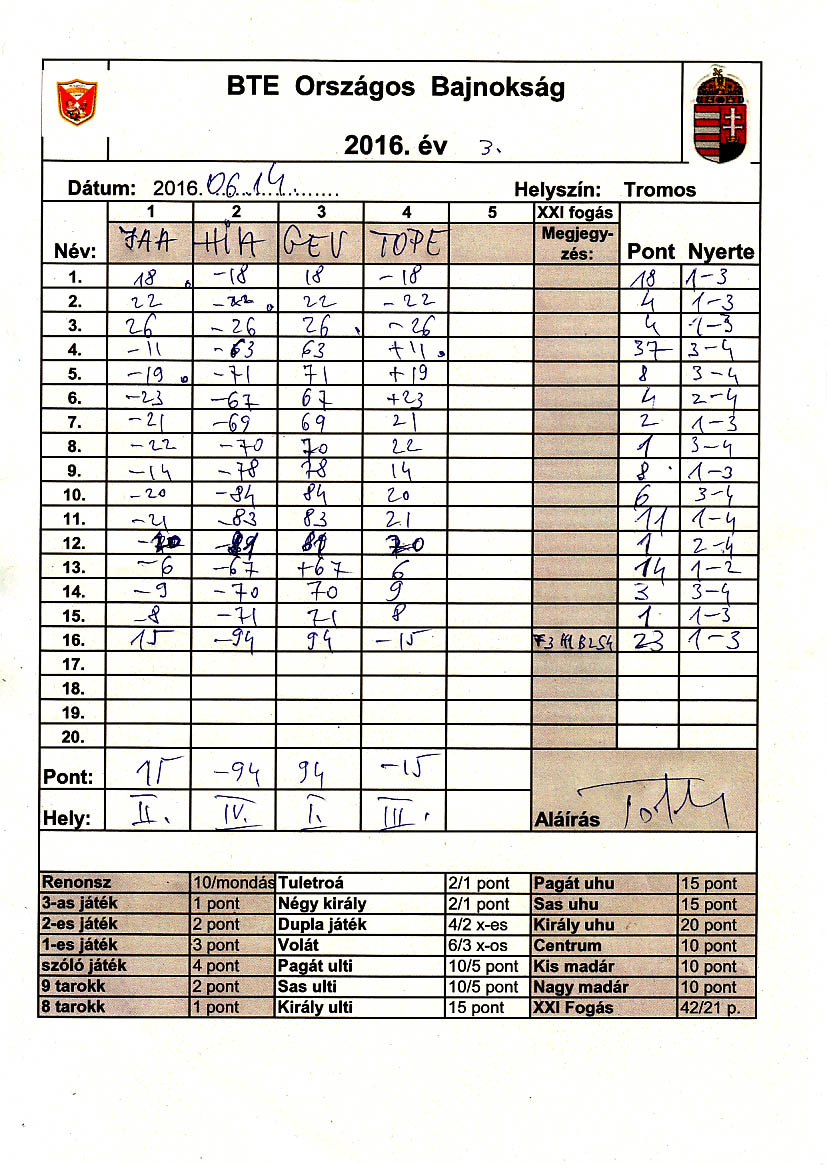 BTE Országos Bajnokság
2016. év 3.
Dátum: 2016.06.14.
Helyszín: Tromos
1 2 3 4 5 XXI fogás
Név: JAA HIA GEV TOPE Megjegyzés: Pont Nyerte
1. 18 -18 18 -18 18 1-3
2. 22 -22 22 -22 4 1-3
3. 26 -26 26 -26 4 1-3
4. -11 -63 63 +11 37 3-4
5. -19 -71 71 +19 8 3-4
6. -23 -67 67 +23 4 2-4
7. -21 -69 69 21 2 1-3
8. -22 -70 70 22 1 3-4
9. -14 -78 78 14 8 1-3
10. -20 -84 84 20 6 3-4
11. -21 -83 83 21 11 1-4
12. 1 2-4
13. -6 -67 +67 6 14 1-2
14. -9 -70 70 9 3 3-4
15. -8 -71 71 8 1 1-3
16. 15 -94 94 -15 23 1-3
17.
18.
19.
20.
Pont: 15 -94 94 -15
Hely: II. IV. I. III.
Aláírás
Renonsz 10/mondás Tuletroá 2/1 pont Pagát uhu 15 pont
3-as játék 1 pont Négy király 2/1 pont Sas uhu 15 pont
2-es játék 2 pont Dupla játék 4/2 x-es Király uhu 20 pont
1-es játék 3 pont Volát 6/3 x-os Centrum 10 pont
szóló játék 4 pont Pagát ulti 10/5 pont Kis madár 10 pont
9 tarokk 2 pont Sas ulti 10/5 pont Nagy madár 10 pont
8 tarokk 1 pont Király ulti 15 pont XXI Fogás 42/21 p.